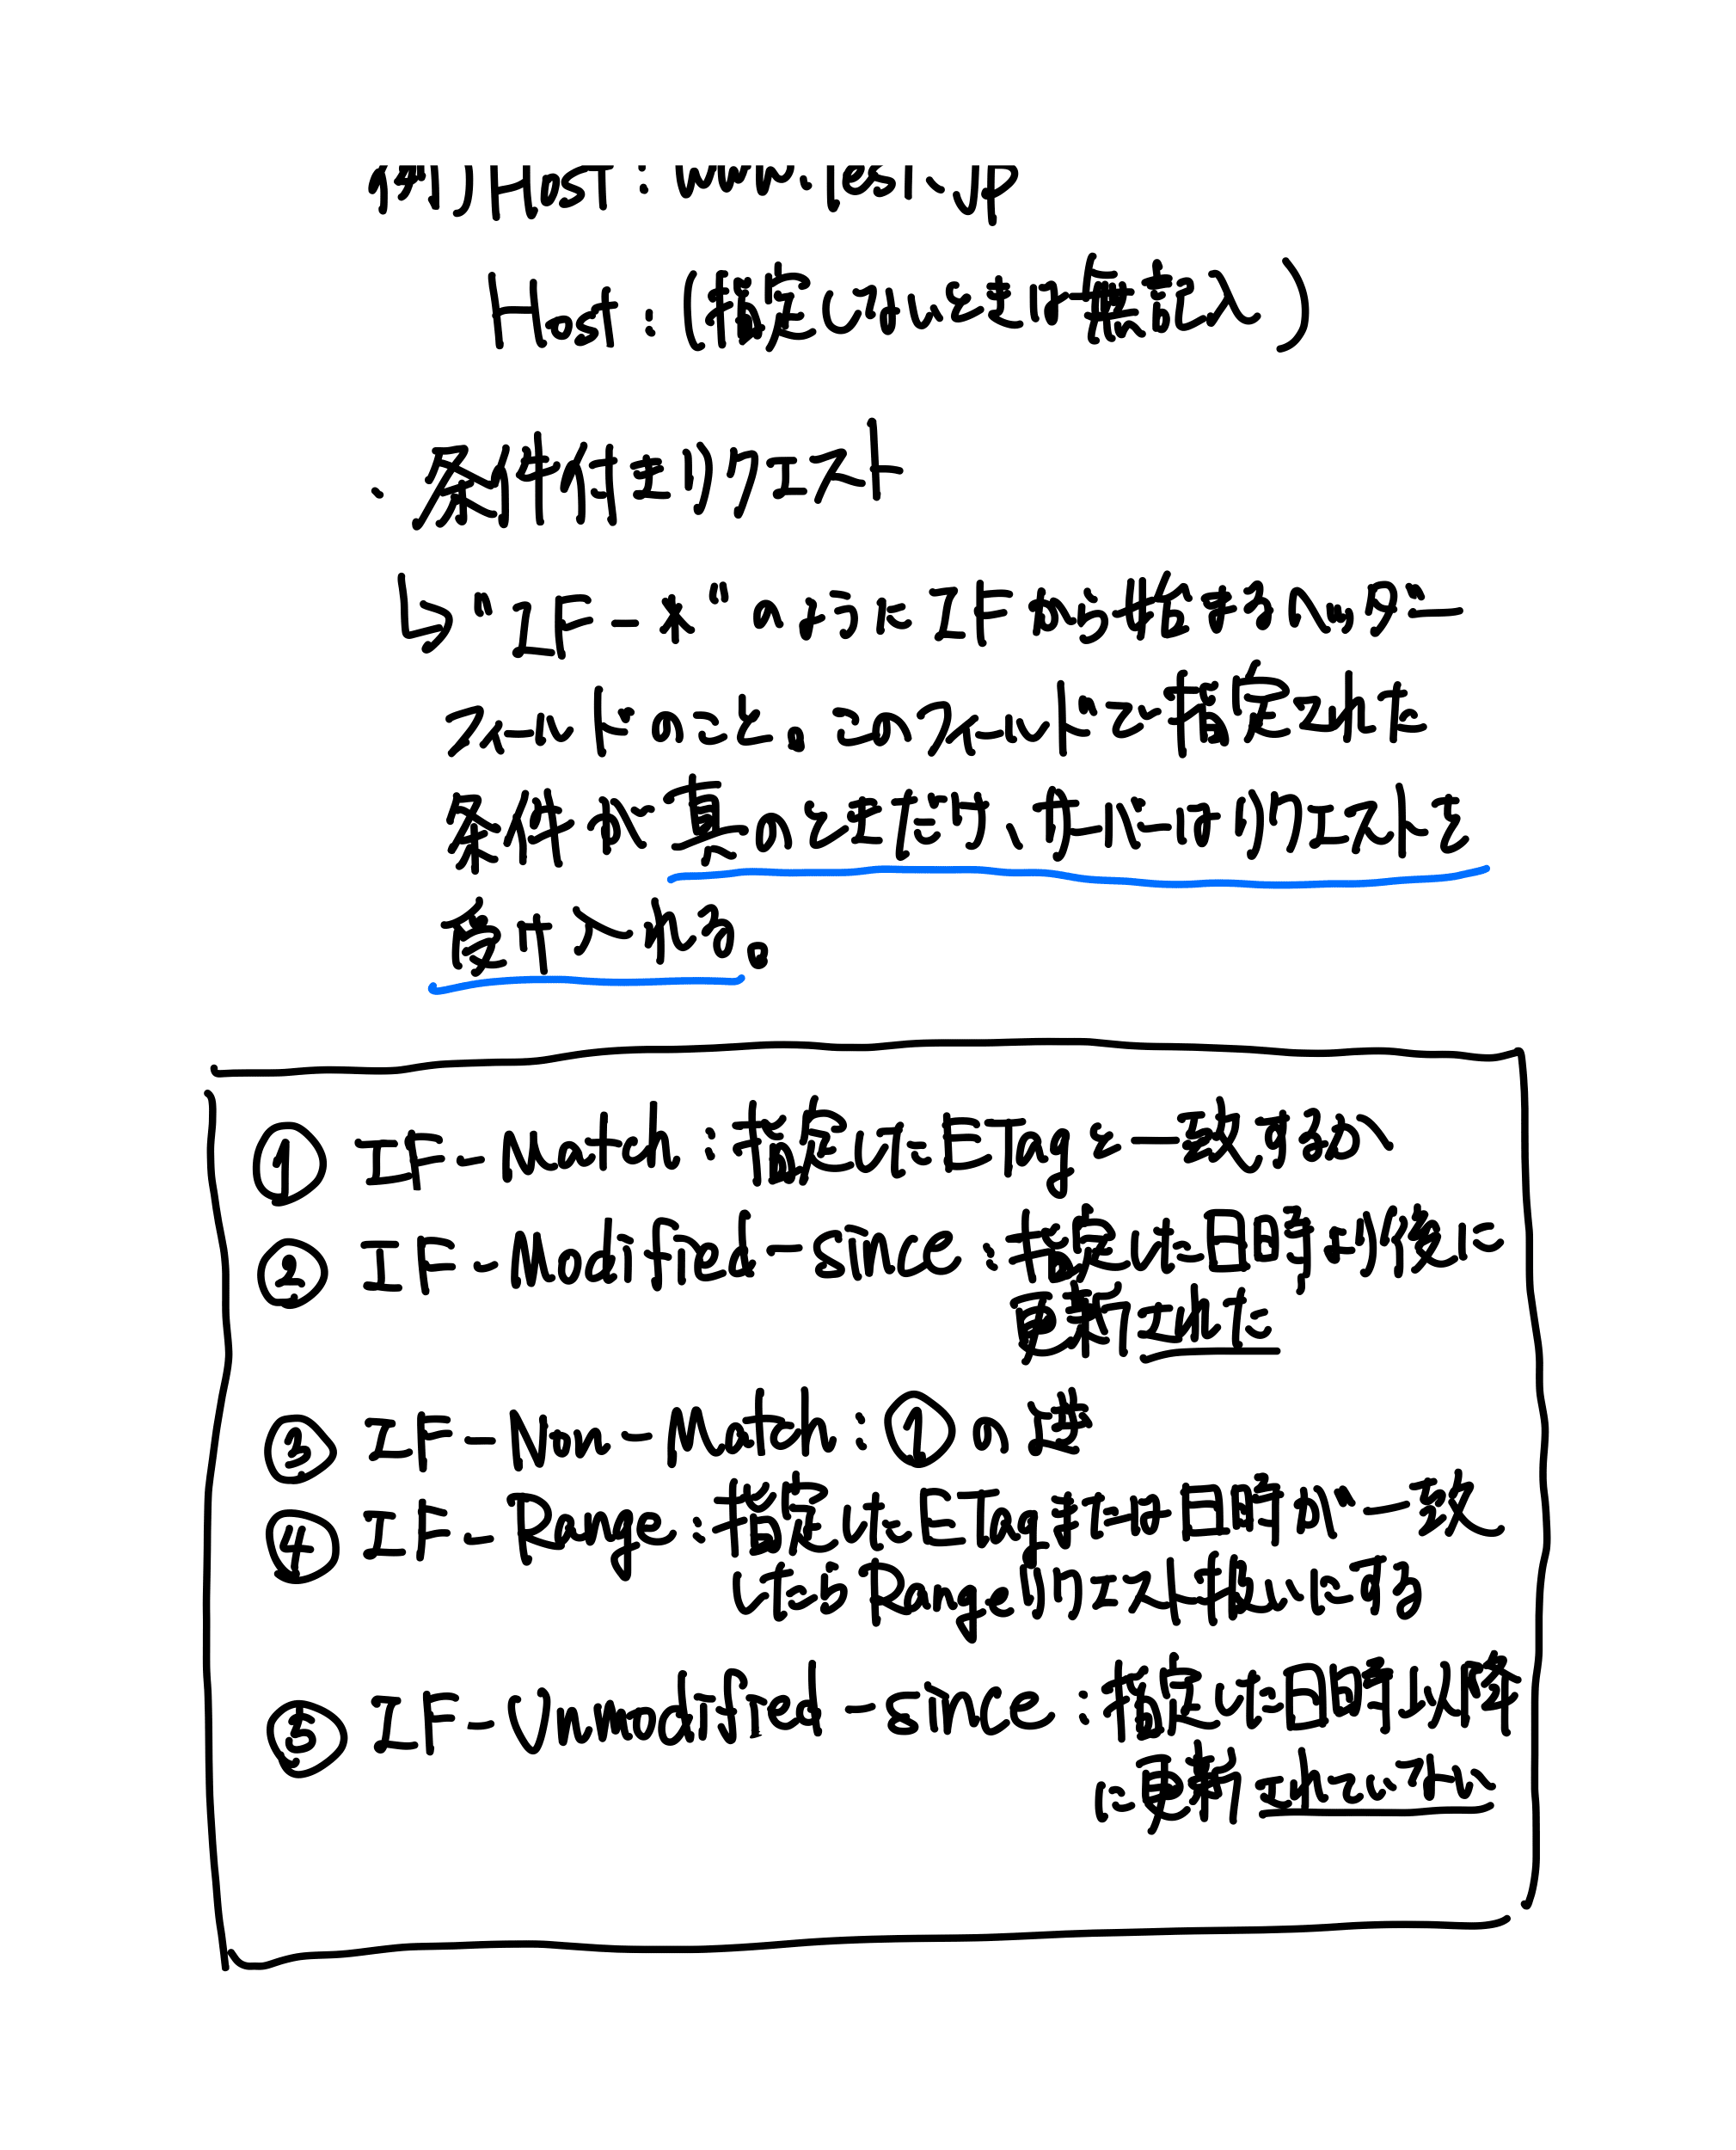 例) Host: www.test.jp
Host: (指定しないときは無記入)
・条件付きリクエスト
↳ "IF-*" のように IF から始まるヘッダー
フィールドのこと。このフィールドで指定された
条件が真のときだけ、サーバーはリクエストを
受け入れる。
① IF-Match: 指定したETagと一致するか
② IF-Modified-since: 指定した日時以後に
更新された
③ IF-Non-Match: ①の逆
④ IF-Range: 指定したETagまたは日時が一致
したらRangeリクエスト扱いにする
⑤ IF-Unmodified-since: 指定した日時以降
に更新されていない